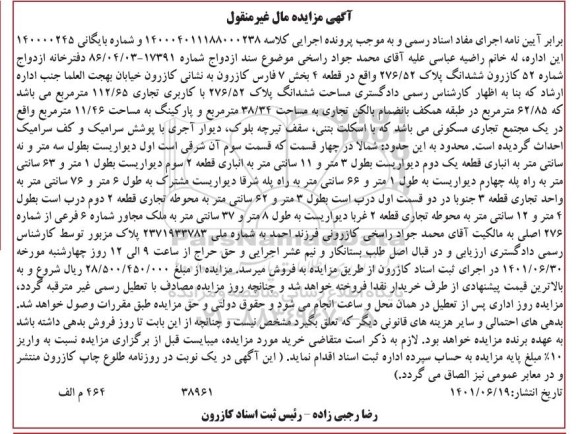 آگهی مزایده مال غیرمنقول
برابر آیین نامه اجرای مفاد اسناد رسمی و به موجب پرونده اجرایی کلاسه ۱۴۰۰۰۴۰۱۱۱۸۸۰۰۰۲۳۸ و شماره بایگانی ۱۴۰۰۰۰۲۴۵
این اداره، له خانم راضیه عباسی علیه آقای محمد جواد راسخی موضوع سند ازدواج شماره ۱۷۳۹۱-۸۶/۰۴/۰۳ دفترخانه ازدواج
شماره ۵۲ کازرون ششدانگ پلاک ۲۷۶/۵۲ واقع در قطعه ۴ بخش ۷ فارس کازرون به نشانی کازرون خیابان بهجت العلما جنب اداره
ارشاد که بنا به اظهار کارشناس رسمی دادگستری مساحت ششدانگ پلاک ۲۷۶/۵۲ با کاربری تجاری ۱۱۲/۶۵ مترمربع می باشد
که ۶۲/۸۵ مترمربع در طبقه همکف بانضمام بالکن تجاری به مساحت ۳۸/۳۴ مترمربع و پارکینگ به مساحت ۱۱/۴۶ مترمربع واقع
در یک مجتمع تجاری مسکونی می باشد که با اسکلت بتنی، سقف تیرچه بلوک، دیوار آجری با پوشش سرامیک و کف سرامیک
احداث گردیده است. محدود به این حدود: شمالا در چهار قسمت که قسمت سوم آن شرقی است اول دیواریست بطول سه متر و نه
سانتی متر به انباری قطعه یک دوم دیواریست بطول ۳ متر و ۱۱ سانتی متر به انباری قطعه ۲ سوم دیواریست بطول ۱ متر و ۶۳ سانتی
متر به راه پله چهارم دیواریست به طول ۱ متر و ۶۶ سانتی متر به راه پله شرقا دیواریست مشترک به طول ۶ متر و ۷۶ سانتی متر به
واحد تجاری قطعه ۳ جنوبا در دو قسمت اول درب است بطول ۳ متر و ۶۲ سانتی متر به محوطه تجاری قطعه ۲ دوم درب است بطول
۴ متر و ۱۲ سانتی متر به محوطه تجاری قطعه ۲ غربا دیواریست به طول ۸ متر و ۳۷ سانتی متر به ملک مجاور شماره ۶ فرعی از شماره
۲۷۶ اصلی به مالکیت آقای محمد جواد راسخی کازرونی فرزند احمد به شماره ملی ۲۳۷۱۹۳۳۷۸۳ پلاک مزبور توسط کارشناس
رسمی دادگستری ارزیابی و در قبال اصل طلب بستانکار و نیم عشر اجرایی و حق حراج از ساعت ۹ الی ۱۲ روز چهارشنبه مورخه
۱۴۰۱/۰۶/۳۰ در اجرای ثبت اسناد کازرون از طریق مزایده به فروش میرسد. مزایده از مبلغ ۲۸/۵۰۰/۴۵۰/۰۰۰ ریال شروع و به
بالاترین قیمت پیشنهادی از طرف خریدار نقدا فروخته خواهد شد و چنانچه روز مزایده مصادف با تعطیل رسمی غیر مترقبه گردد،
مزایده روز اداری پس از تعطیل در همان محل و ساعت انجام می گردد و حقوق دولتی و حق مزایده طبق مقررات وصول خواهد شد.
بدهی های احتمالی و سایر هزینه های قانونی دیگر که تعلق بگیرد مشخص نیست و چنانچه از این بابت تا روز فروش بدهی داشته باشد
به عهده برنده مزایده خواهد بود. لازم به ذکر است متقاضی خرید مورد مزایده، میبایست قبل از برگزاری مزایده نسبت به واریز
۱۰٪ مبلغ پایه مزایده به حساب سپرده اداره ثبت اسناد اقدام نماید. ( این آگهی در یک نوبت در روزنامه طلوع چاپ کازرون منتشر
و در معابر عمومی نیز الصاق می گردد.)
تاریخ انتشار: ۱۴۰۱/۰۶/۱۹ ۳۸۹۶۱ ۴۶۴ م الف
رضا رجبی زاده - رئیس ثبت اسناد کازرون